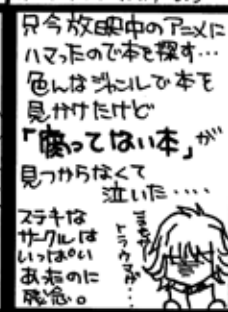 只今放映中のアニメに
ハマったので本を探す…
色んなジャンルで本を
見かけたけど
「腐ってない本」が
見つからなくて
泣いた‥‥
ステキな
サークルは
いっぱい
あるのに
残念。
トラウマが…